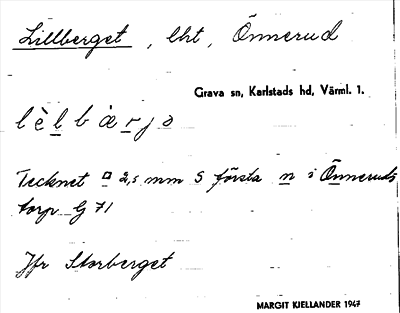 Lillberget, lht, Önnerud
Grava sn, Karlstads hd, Värml. l.
lèlbàrjə
Tecknet ¤ 2,5 mm S första n i Önneruds
torp G 71
Jfr Storberget
MARGIT KJELLANDER 1947